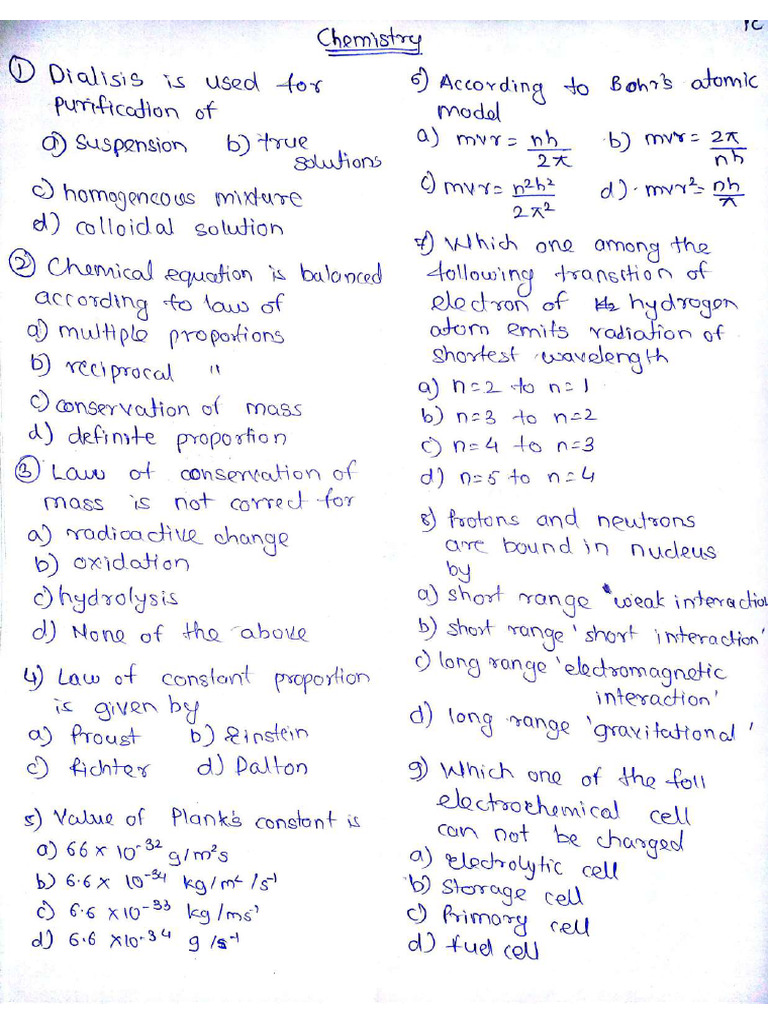 Chemistry
1C
① Dialisis is used for
purification of
a) suspension b) true
solutions
c) homogeneous mixture
d) colloidal solution
② Chemical equation is balanced
according to law of
a) multiple proportions
b) reciprocal "
c) conservation of mass
d) definite proportion
③ Law of conservation of
mass is not correct for
a) radioactive change
b) oxidation
c) hydrolysis
d) None of the above
4) Law of constant proportion
is given by
a) Proust b) Einstein
c) Richter d) Dalton
5) Value of Plank's constant is
a) 66 x 10⁻³² g/m²s
b) 6.6 x 10⁻³⁴ kg/m²/s⁻¹
c) 6.6 x10⁻³³ kg/ms'
d) 6.6 x10⁻³⁴ g /s⁻¹
6) According to Bohr's atomic
model
a) mvr = nh/2π b) mvr = 2π/nh
c) mvr = n²h²/2π² d) mvr² = nh/π
7) Which one among the
following transition of
electron of hydrogen
atom emits radiation of
shortest wavelength
a) n=2 to n=1
b) n=3 to n=2
c) n=4 to n=3
d) n=5 to n=4
8) Protons and neutrons
are bound in nucleus
by
a) short range 'weak interaction
b) short range 'short interaction'
c) long range 'electromagnetic
interaction'
d) long range 'gravitational'
9) Which one of the foll
electrochemical cell
can not be charged
a) Electrolytic cell
b) Storage cell
c) Primary cell
d) fuel cell